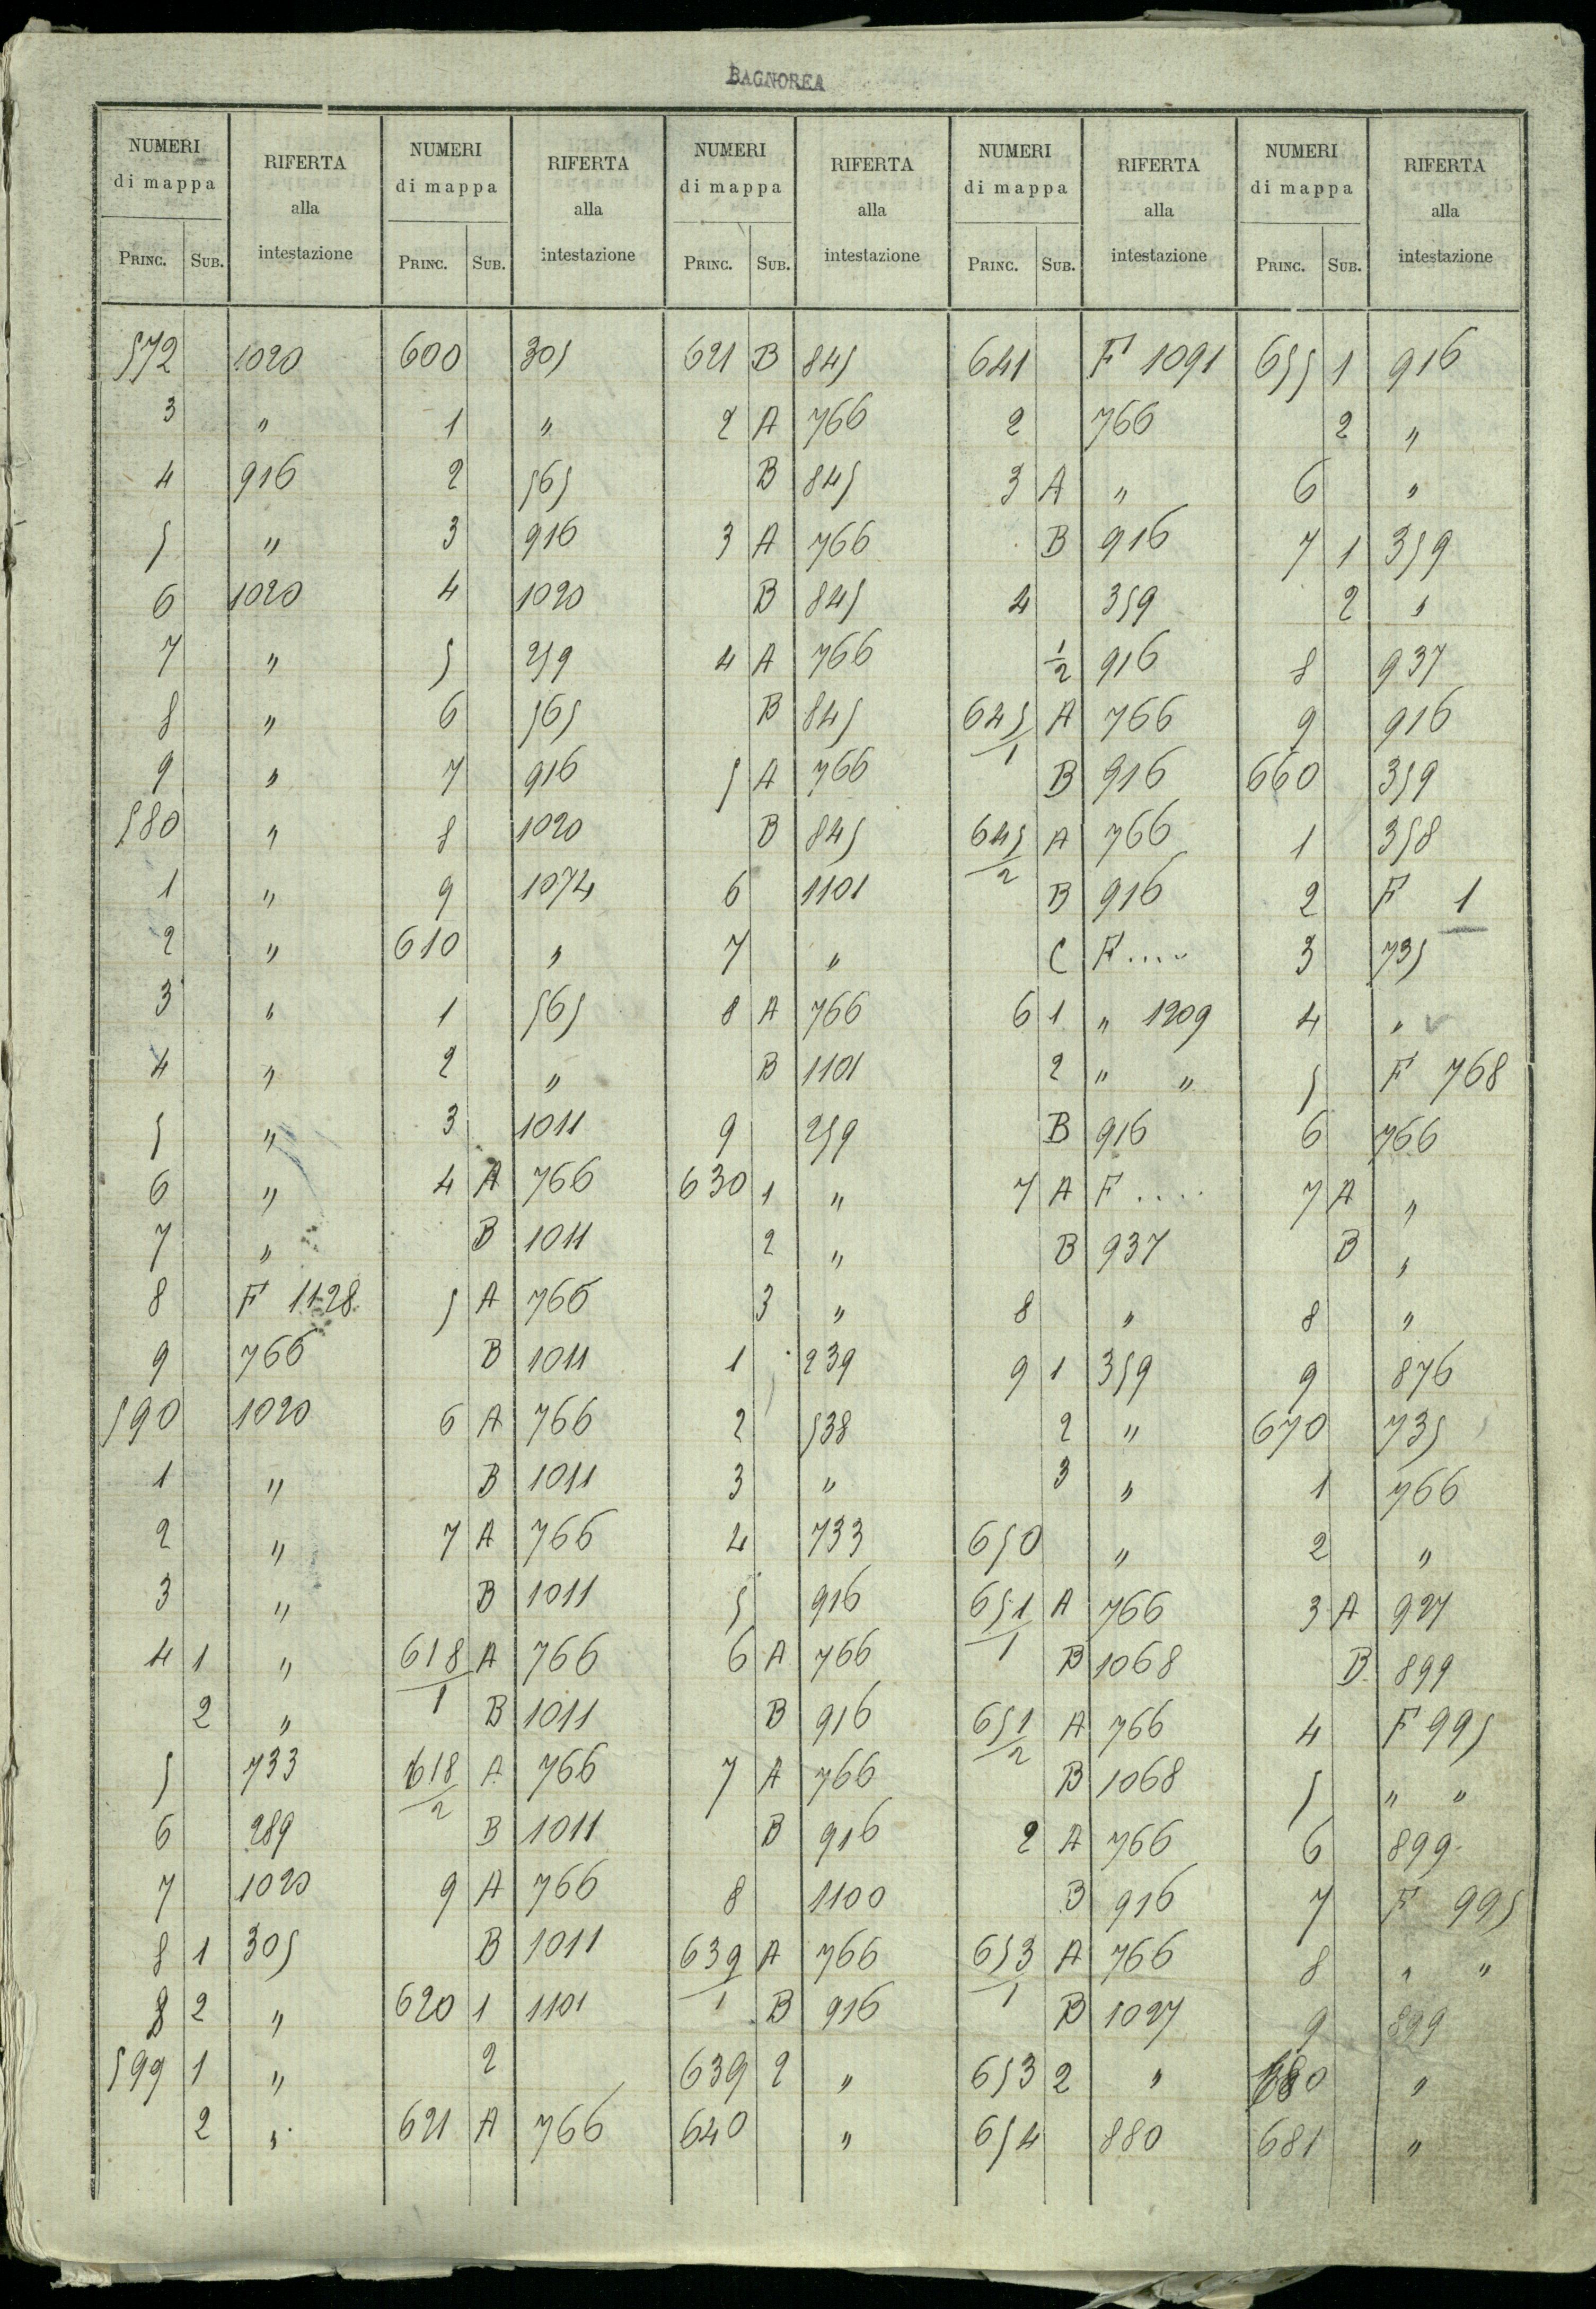 BAGNOREA
NUMERI di mappa RIFERTA alla intestazione NUMERI di mappa RIFERTA alla intestazione NUMERI di mappa RIFERTA alla intestazione NUMERI di mappa RIFERTA alla intestazione NUMERI di mappa RIFERTA alla intestazione
PRINC. SUB. PRINC. SUB. PRINC. SUB. PRINC. SUB. PRINC. SUB.
572 1020 600 305 621 B 845 641 F 1091 655 1 916
3 " 1 " 2 A 766 2 766 2 "
4 916 2 565 B 845 3 A " 6 "
5 " 3 916 3 A 766 B 916 7 1 359
6 1020 4 1020 B 845 4 359 2 "
7 " 5 259 4 A 766 1/2 916 8 937
8 " 6 565 B 845 645/1 A 766 9 916
9 " 7 916 5 A 766 B 916 660 359
580 " 8 1020 B 845 645/2 A 766 1 358
1 " 9 1074 6 1101 B 916 2 F 1
2 " 610 " 7 " C F .... 3 735
3 " 1 565 8 A 766 6 1 " 1209 4 "
4 " 2 " B 1101 2 " " 5 F 768
5 " 3 1011 9 259 B 916 6 766
6 " 4 A 766 630 1 " 7 A F .... 7 A "
7 " B 1011 2 " B 937 B "
8 F 1128 5 A 766 3 " 8 " 8 "
9 766 B 1011 1 239 9 1 359 9 876
590 1020 6 A 766 2 538 2 " 670 735
1 " B 1011 3 " 3 " 1 766
2 " 7 A 766 4 733 650 " 2 "
3 " B 1011 5 916 651/1 A 766 3 A 927
4 1 " 618/1 A 766 6 A 766 B 1068 B 899
2 " B 1011 B 916 651/2 A 766 4 F 995
5 733 618/2 A 766 7 A 766 B 1068 5 " "
6 289 B 1011 B 916 2 A 766 6 899
7 1020 9 A 766 8 1100 B 916 7 F 995
8 1 305 B 1011 639/1 A 766 653/1 A 766 8 " "
8 2 " 620 1 1101 B 916 B 1027 9 899
599 1 " 2 639 2 " 653 2 " 680 "
2 " 621 A 766 640 " 654 880 681 "